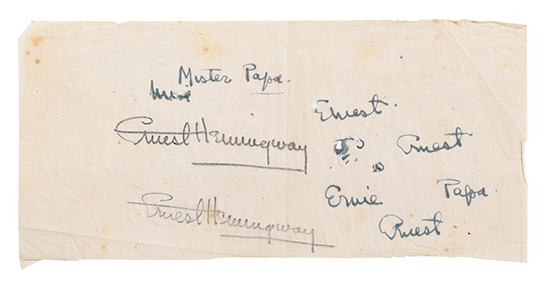 Mister Papa.
Ernest.
Ernest Hemingway
Ernest
Ernie
Papa
Ernest Hemingway
Ernest